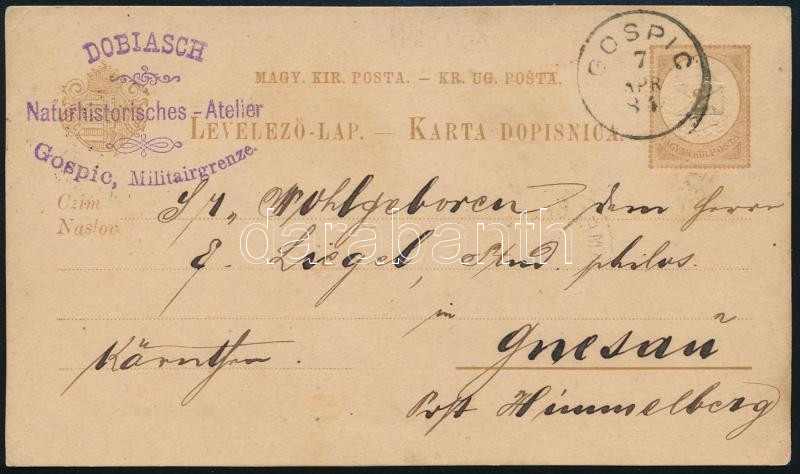 DOBIASCH
Naturhistorisches-Atelier
Gospic, Militairgrenze.
GOSPIĆ
7
APR
84
MAGY. KIR. POSTA. — KR. UG. POŠTA.
LEVELEZŐ-LAP. — KARTA DOPISNICA.
MAGYAR KIR. POSTA
Czim
Naslov
Wohlgeboren dem Herrn
E. Liegel, stud. philos.
in
Gnesau
Kärnthen.
Post Himmelberg
darabanth